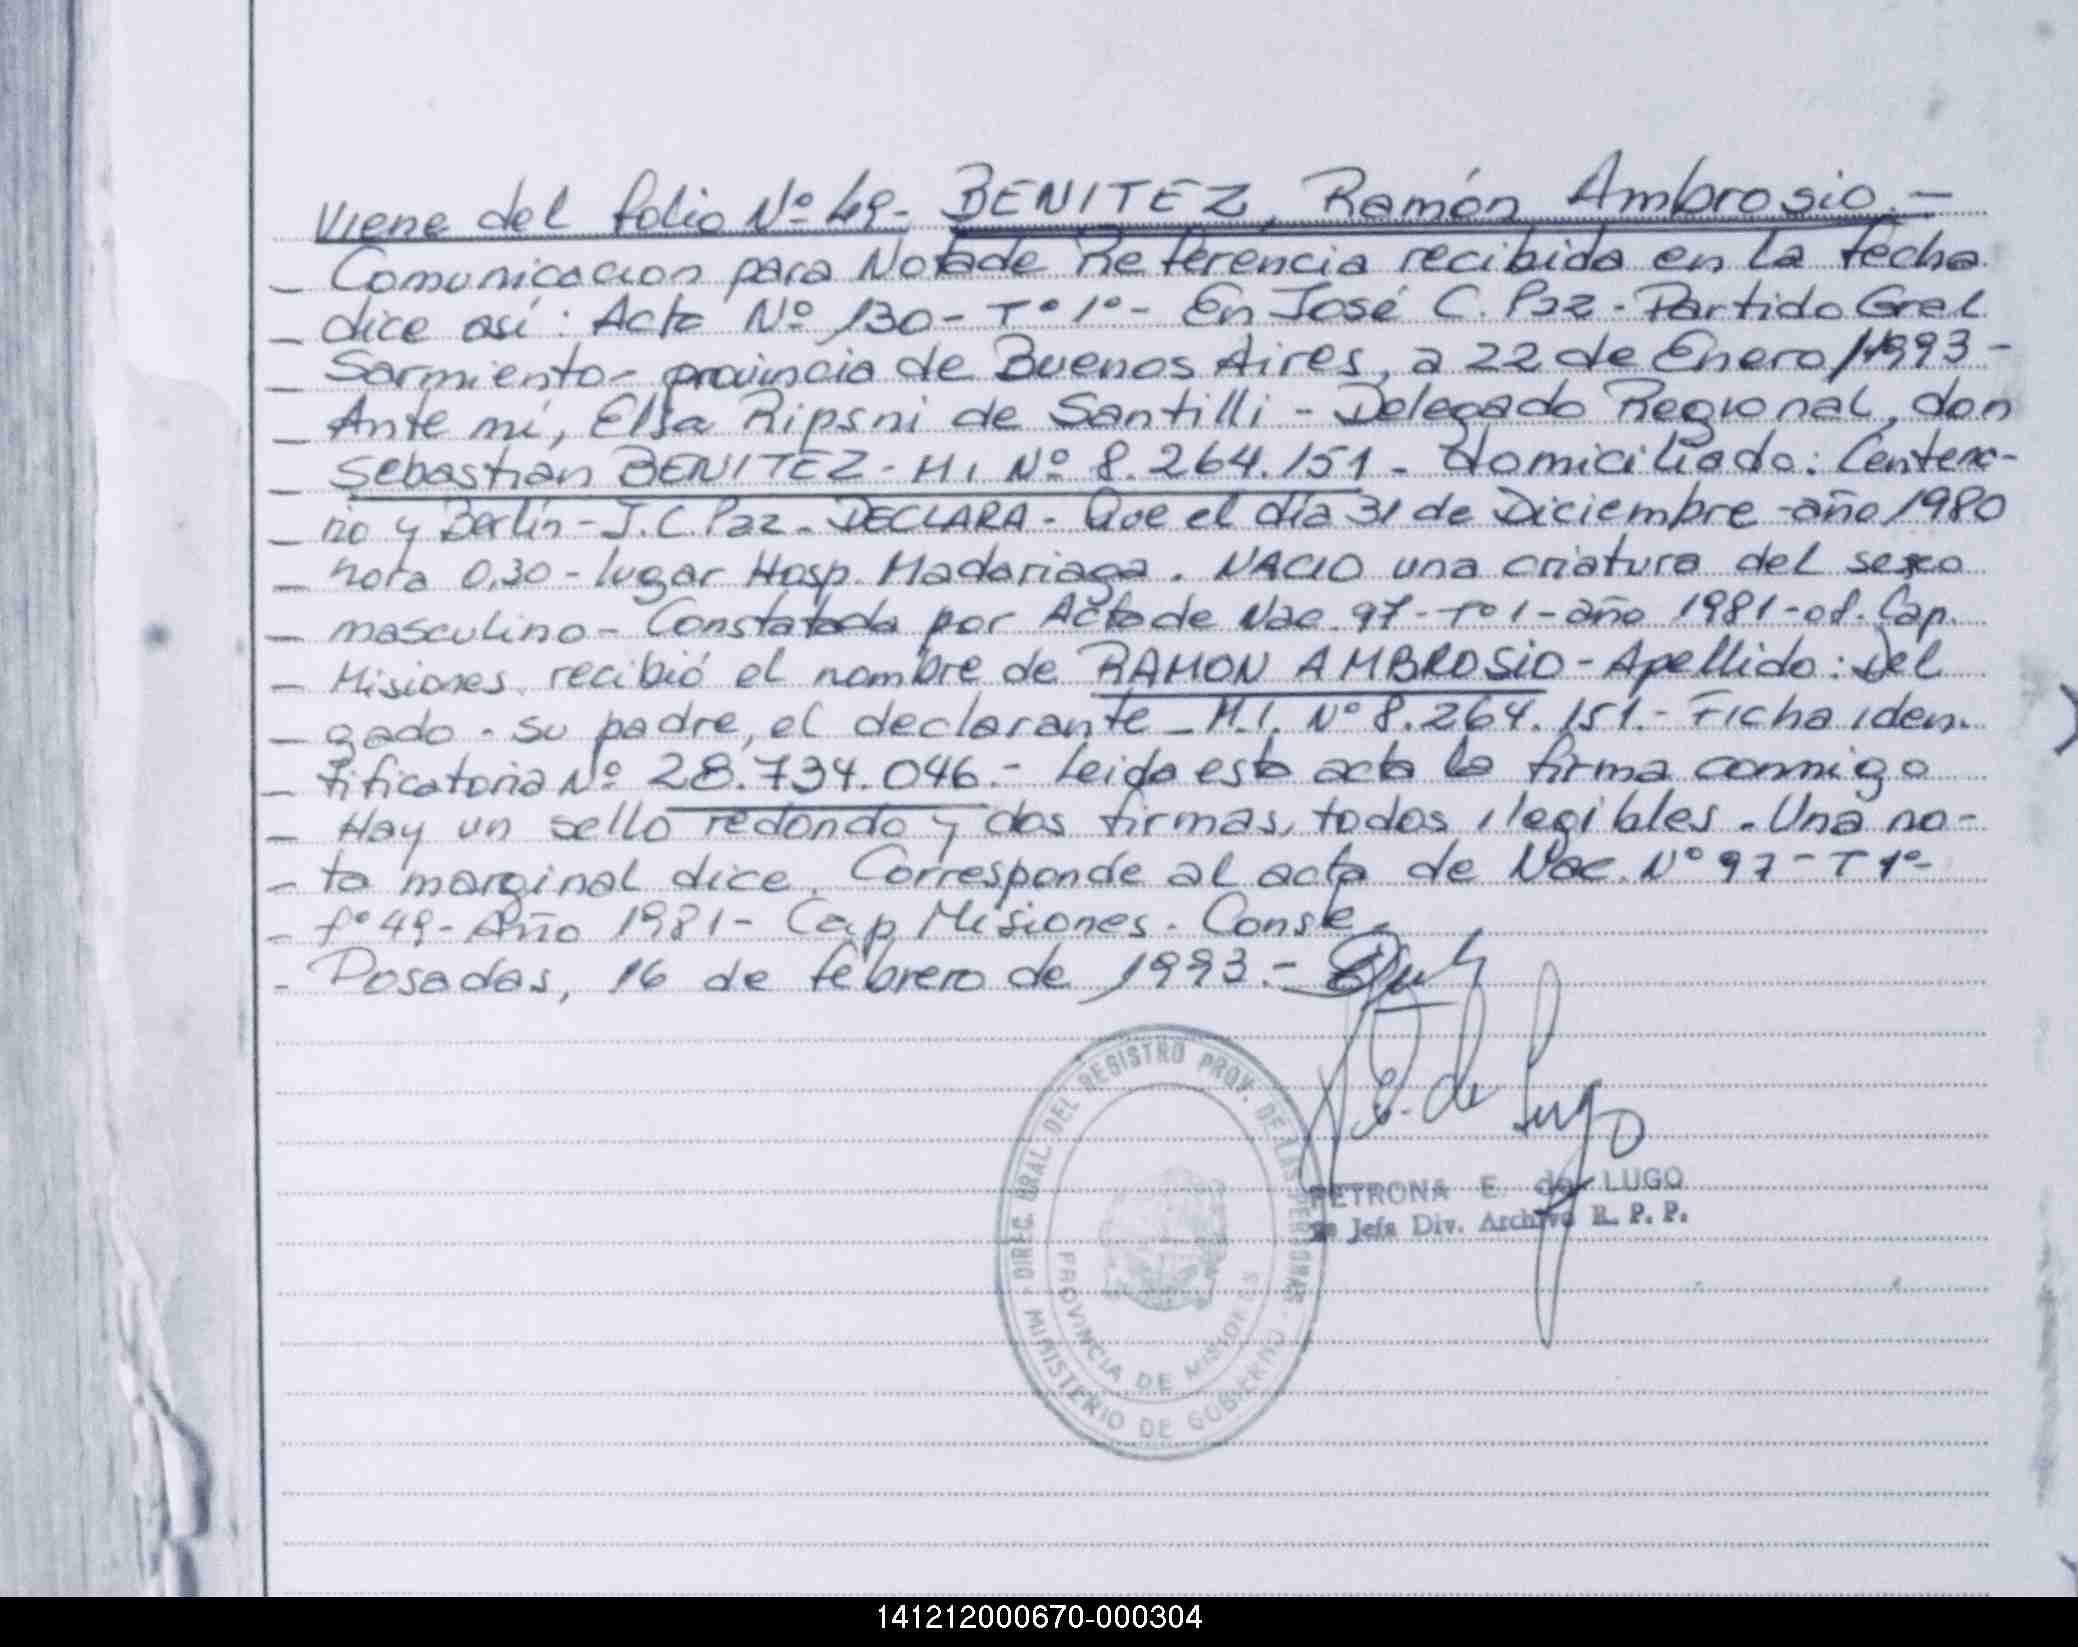 Viene del folio Nº 49- BENITEZ, Ramón Ambrosio.-
- Comunicacion para Nota de Referencia recibida en la fecha
- dice así: Acta Nº 130 - Tº 1º - En José C. Paz - Partido Gral
- Sarmiento - provincia de Buenos Aires, a 22 de Enero/1993 -
- Ante mí, Elsa Ripsni de Santilli - Delegado Regional, don
- Sebastián BENITEZ - M.I. Nº 8.264.151 - domiciliado: Centena-
- rio y Berlín - J.C. Paz - DECLARA - Que el día 31 de Diciembre - año 1980
- hora 0,30 - lugar Hosp. Madariaga. NACIO una criatura del sexo
- masculino - Constatada por Acta de Nac. 97 - Tº 1 - año 1981 - of. Cap.
- Misiones, recibió el nombre de RAMON AMBROSIO - Apellido: Del
- gado - su padre, el declarante - M.I. Nº 8.264.151.- Ficha iden-
- tificatoria Nº 28.734.046.- Leida esta acta la firma conmigo
- Hay un sello redondo y dos firmas, todos ilegibles. Una no-
- ta marginal dice. Corresponde al acta de Nac. Nº 97 - T 1º-
- fº 49 - Año 1981 - Cap Misiones. Conste.
- Posadas, 16 de febrero de 1993.-
P.E. de Lugo
DIREC. GRAL. DEL REGISTRO PROV. DE LAS PERSONAS
PROVINCIA DE MISIONES
MINISTERIO DE GOBIERNO
PETRONA E. de LUGO
Jefa Div. Archivo R. P. P.
141212000670-000304